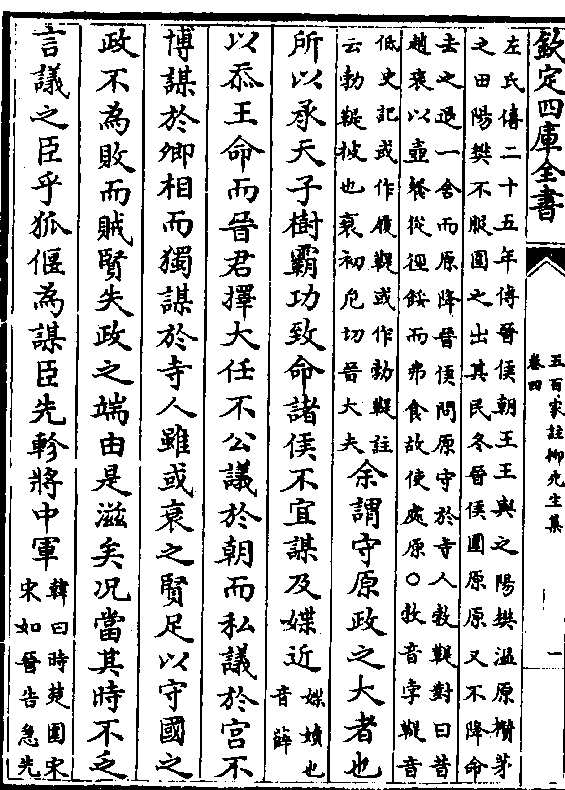 欽定四庫全書
五百家註柳先生集
卷四
一
左氏傳二十五年傳晉侯朝王王與之陽樊溫原欑茅
之田陽樊不服圍之出其民冬晉侯圍原原又不降命
去之退一舍而原降晉侯問原守於寺人㪍鞮對曰昔
趙衰以壺餐從徑餒而弗食故使處原○㪍音孛鞮音
低史記或作履鞮或作勃鞮註
云勃鞮披也衰初危切晉大夫
余謂守原政之大者也
所以承天子樹霸功致命諸侯不宜謀及媟近
媟嬻也
音薛
以忝王命而晉君擇大任不公議於朝而私議於宮不
博謀於卿相而獨謀於寺人雖或衰之賢足以守國之
政不為敗而賊賢失政之端由是滋矣况當其時不乏
言議之臣乎狐偃為謀臣先軫將中軍
韓曰時楚圍宋
宋如晉告急先